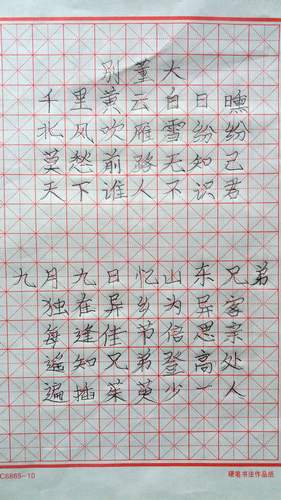 别董大
千里黄云白日曛
北风吹雁雪纷纷
莫愁前路无知己
天下谁人不识君
九月九日忆山东兄弟
独在异乡为异客
每逢佳节倍思亲
遥知兄弟登高处
遍插茱萸少一人
C6865-10
硬笔书法作品纸